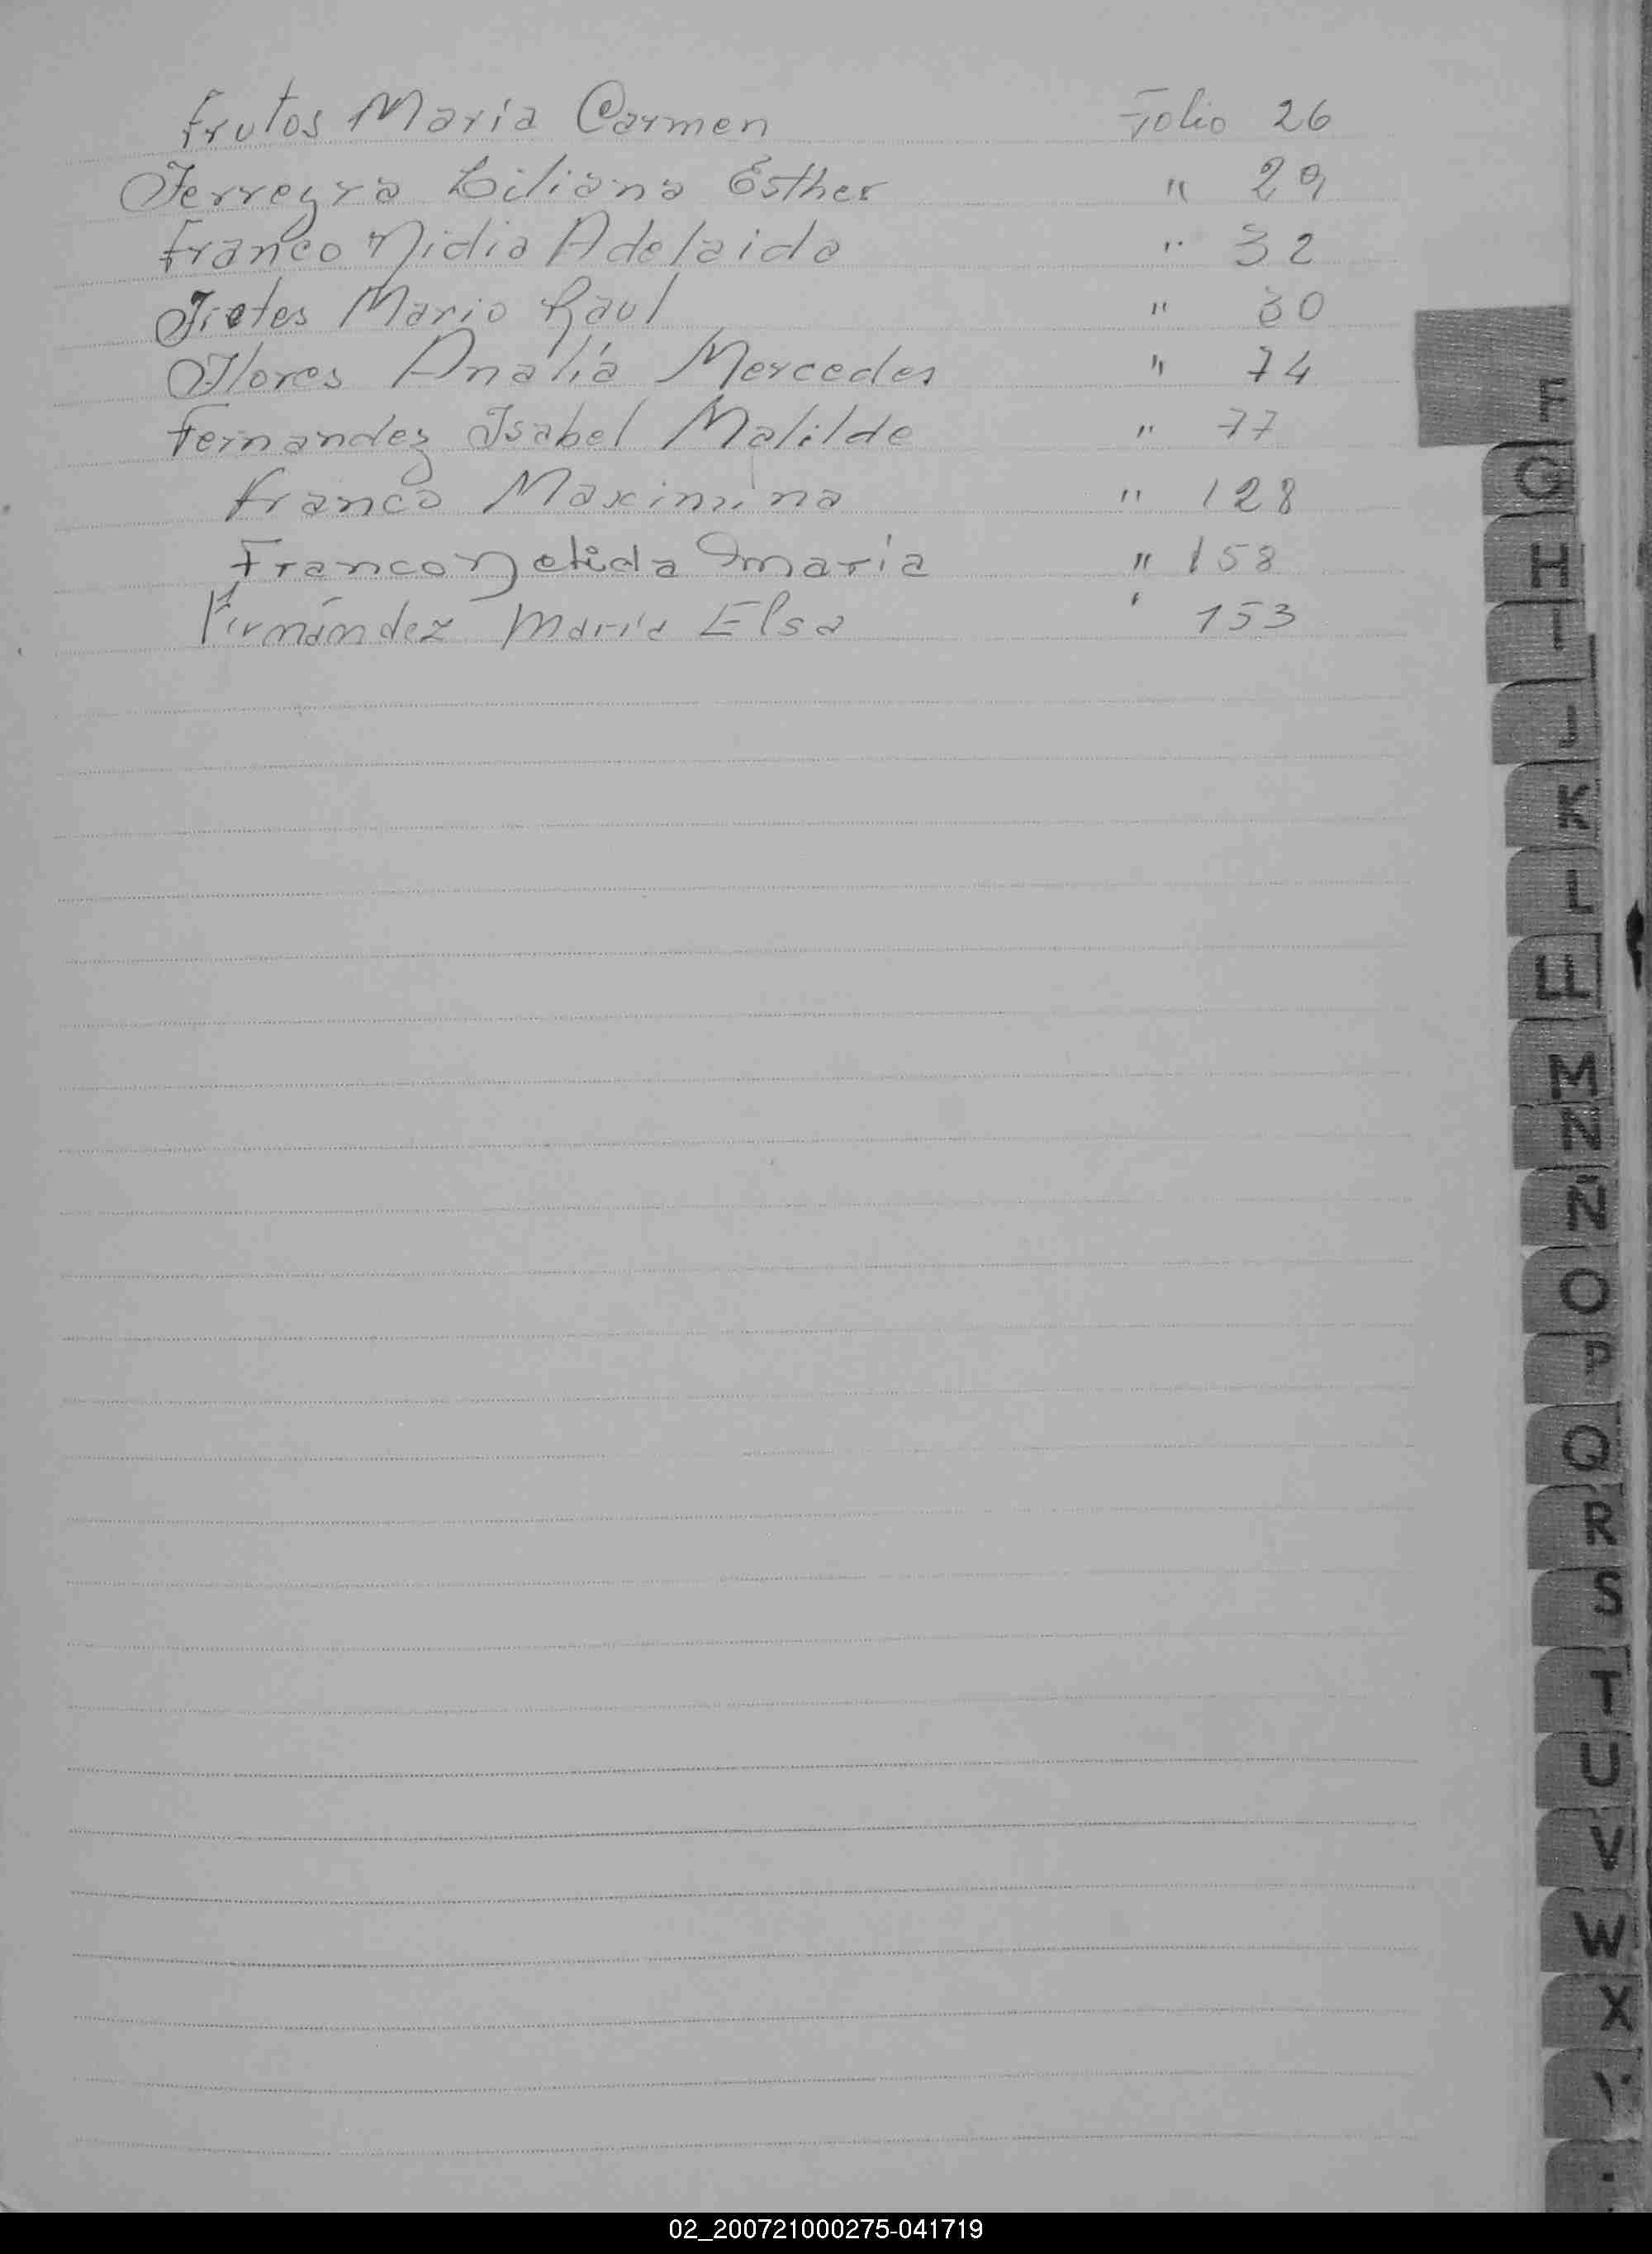 Frutos Maria Carmen Folio 26
Ferreyra Liliana Esther " 29
Franco Nidia Adelaida " 32
Mario Raul " 30
Flores Analía Mercedes " 74
Fernandez Isabel Matilde " 77
Franco Maximina " 128
Franco Nelida María " 158
Fernández María Elsa " 153
F
G
H
I
J
K
L
LL
M
N
Ñ
O
P
Q
R
S
T
U
V
W
X
Y
02_200721000275-041719